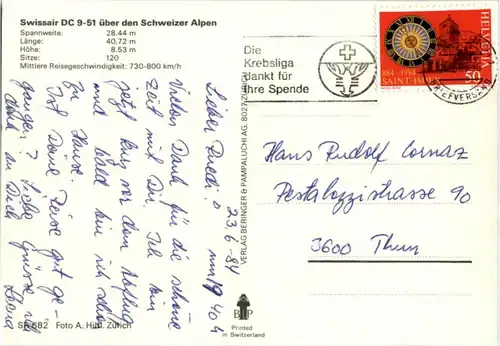 Swissair DC 9-51 über den Schweizer Alpen
Spannweite: 28.44 m
Länge: 40,72 m
Höhe: 8.53 m
Sitze: 120
Mittlere Reisegeschwindigkeit: 730-800 km/h
Die
Krebsliga
dankt für
Ihre Spende
HELVETIA
884-1984
SAINT-IMIER
50
BRIEFVERSAND
23.6.84
Lieber Ruedi!
Vielen Dank für die schöne
Zeit mit Dir. Ich bin
jetzt kurz vor dem Abflug
und bald bin ich schon
zu Hause.
Ist Deine Reise gut ge-
gangen? Liebe Grüsse, ich
denk an Dich
VERLAG BERINGER & PAMPALUCHI AG, 8027 ZÜRICH
Hans Rudolf Cornaz
Pestalozzistrasse 90
3600 Thun
SR 682 Foto A. Hild, Zürich
B P
Printed
in Switzerland